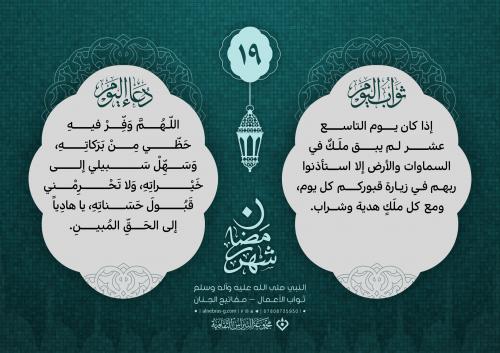 ١٩
ثواب اليوم
إذا كان يوم التاسع
عشر لم يبق ملَكٌ في
السماوات والأرض إلا استأذنوا
ربهم في زيارة قبوركم كل يوم،
ومع كل ملَكٍ هدية وشراب.
دعاء اليوم
اللّهُمَّ وَفِّرْ فيهِ
حَظّي مِنْ بَرَكاتِهِ،
وَسَهِّلْ سَبيلي إلى
خَيْراتِهِ، وَلا تَحْرِمْني
قَبُولَ حَسَناتِهِ، يا هادِياً
إلى الحَقِّ المُبينِ.
شهر رمضان
النبي صلى الله عليه وآله وسلم
ثواب الأعمال – مفاتيح الجنان
alnebras-g.com | 07808705950
مجموعة النبراس الثقافية